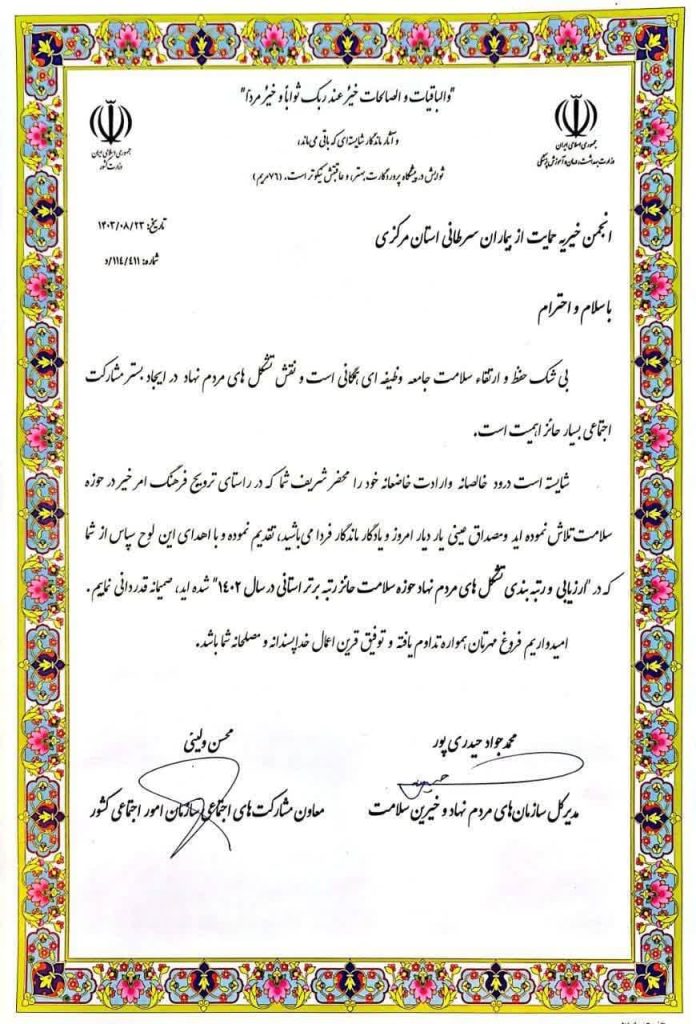 "والباقیات و الصالحات خیرٌ عند ربک ثواباً و خیرٌ مردا"
و آثار ماندگار شایسته‌ای که باقی می‌ماند،
ثوابش در پیشگاه پروردگارت بهتر، و عاقبتش نیکوتر است. (۷۶ مریم)
جمهوری اسلامی ایران
وزارت بهداشت، درمان و آموزش پزشکی
جمهوری اسلامی ایران
وزارت کشور
تاریخ: ۱۴۰۳/۰۸/۲۳
شماره: ۱۱۴/۴۱۱/د
انجمن خیریه حمایت از بیماران سرطانی استان مرکزی
با سلام و احترام
بی شک حفظ و ارتقاء سلامت جامعه وظیفه ای همگانی است و نقش تشکل های مردم نهاد در ایجاد بستر مشارکت
اجتماعی بسیار حائز اهمیت است.
شایسته است درود خالصانه وارادت خاضعانه خود را محضر شریف شما که در راستای ترویج فرهنگ امر خیر در حوزه
سلامت تلاش نموده اید ومصداق عینی یار دیار امروز و یادگار ماندگار فردا می‌باشید، تقدیم نموده و با اهدای این لوح سپاس از شما
که در "ارزیابی و رتبه بندی تشکل های مردم نهاد حوزه سلامت حائز رتبه برتر استانی در سال ۱۴۰۲" شده اید، صمیمانه قدردانی نماییم.
امیدواریم فروغ مهرتان همواره تداوم یافته و توفیق قرین اعمال خداپسندانه و مصلحانه شما باشد.
محمد جواد حیدری پور
مدیرکل سازمان‌های مردم نهاد و خیرین سلامت
محسن ولیئی
معاون مشارکت‌های اجتماعی سازمان امور اجتماعی کشور